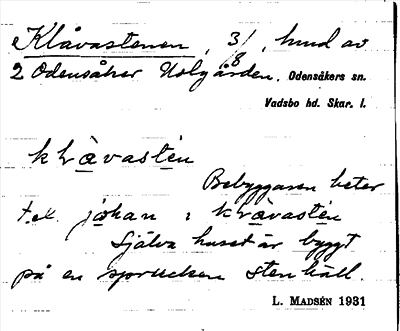 Klåvastenen, 3/8, hmd av
2 Odensåker Holgården. Odensåkers sn.
Vadsbo hd. Skar. l.
klåvastén
Bebyggaren heter
t.ex. johan i klåvastén
Själva huset är byggt
på en sprucken stenhäll.
L. MADSÉN 1931